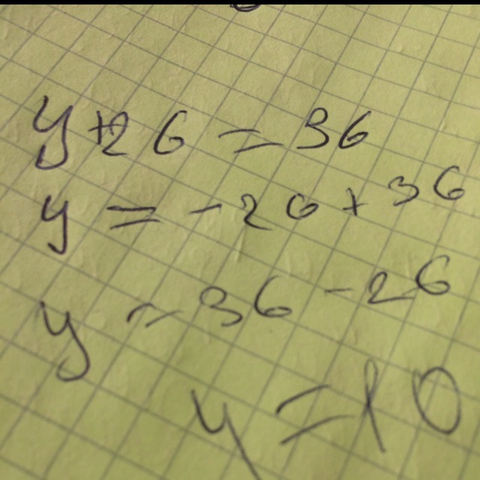 y+26=36
y=-26+36
y=36-26
y=10